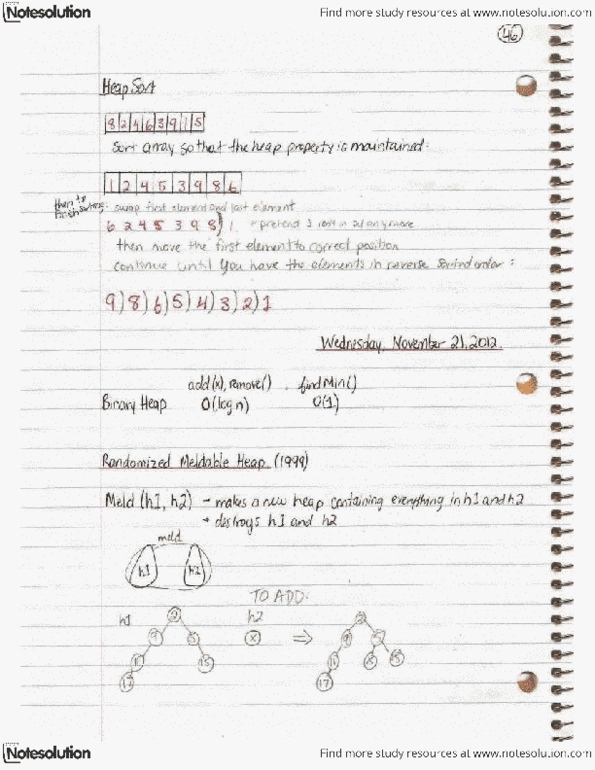 Notesolution
Find more study resources at www.notesolution.com
46
Heap Sort
8 2 4 6 3 9 1 5
Sort array so that the heap property is maintained:
1 2 4 5 3 9 8 6
then to
finish sorting: swap first element and last element
6 2 4 5 3 9 8) 1 → pretend 1 isn't in
then move the first element to correct position
continue until you have the elements in reverse sorted order:
9) 8) 6) 5) 4) 3) 2) 1
Wednesday, November 21, 2012.
add(x), remove() findMin()
Binary Heap O(log n) O(1)
Randomized Meldable Heap (1998)
Meld (h1, h2) → makes a new heap containing everything in h1 and h2
→ destroys h1 and h2
meld
h1 h2
TO ADD:
h1 h2
x ⇒
17 17
Notesolution
Find more study resources at www.notesolution.com